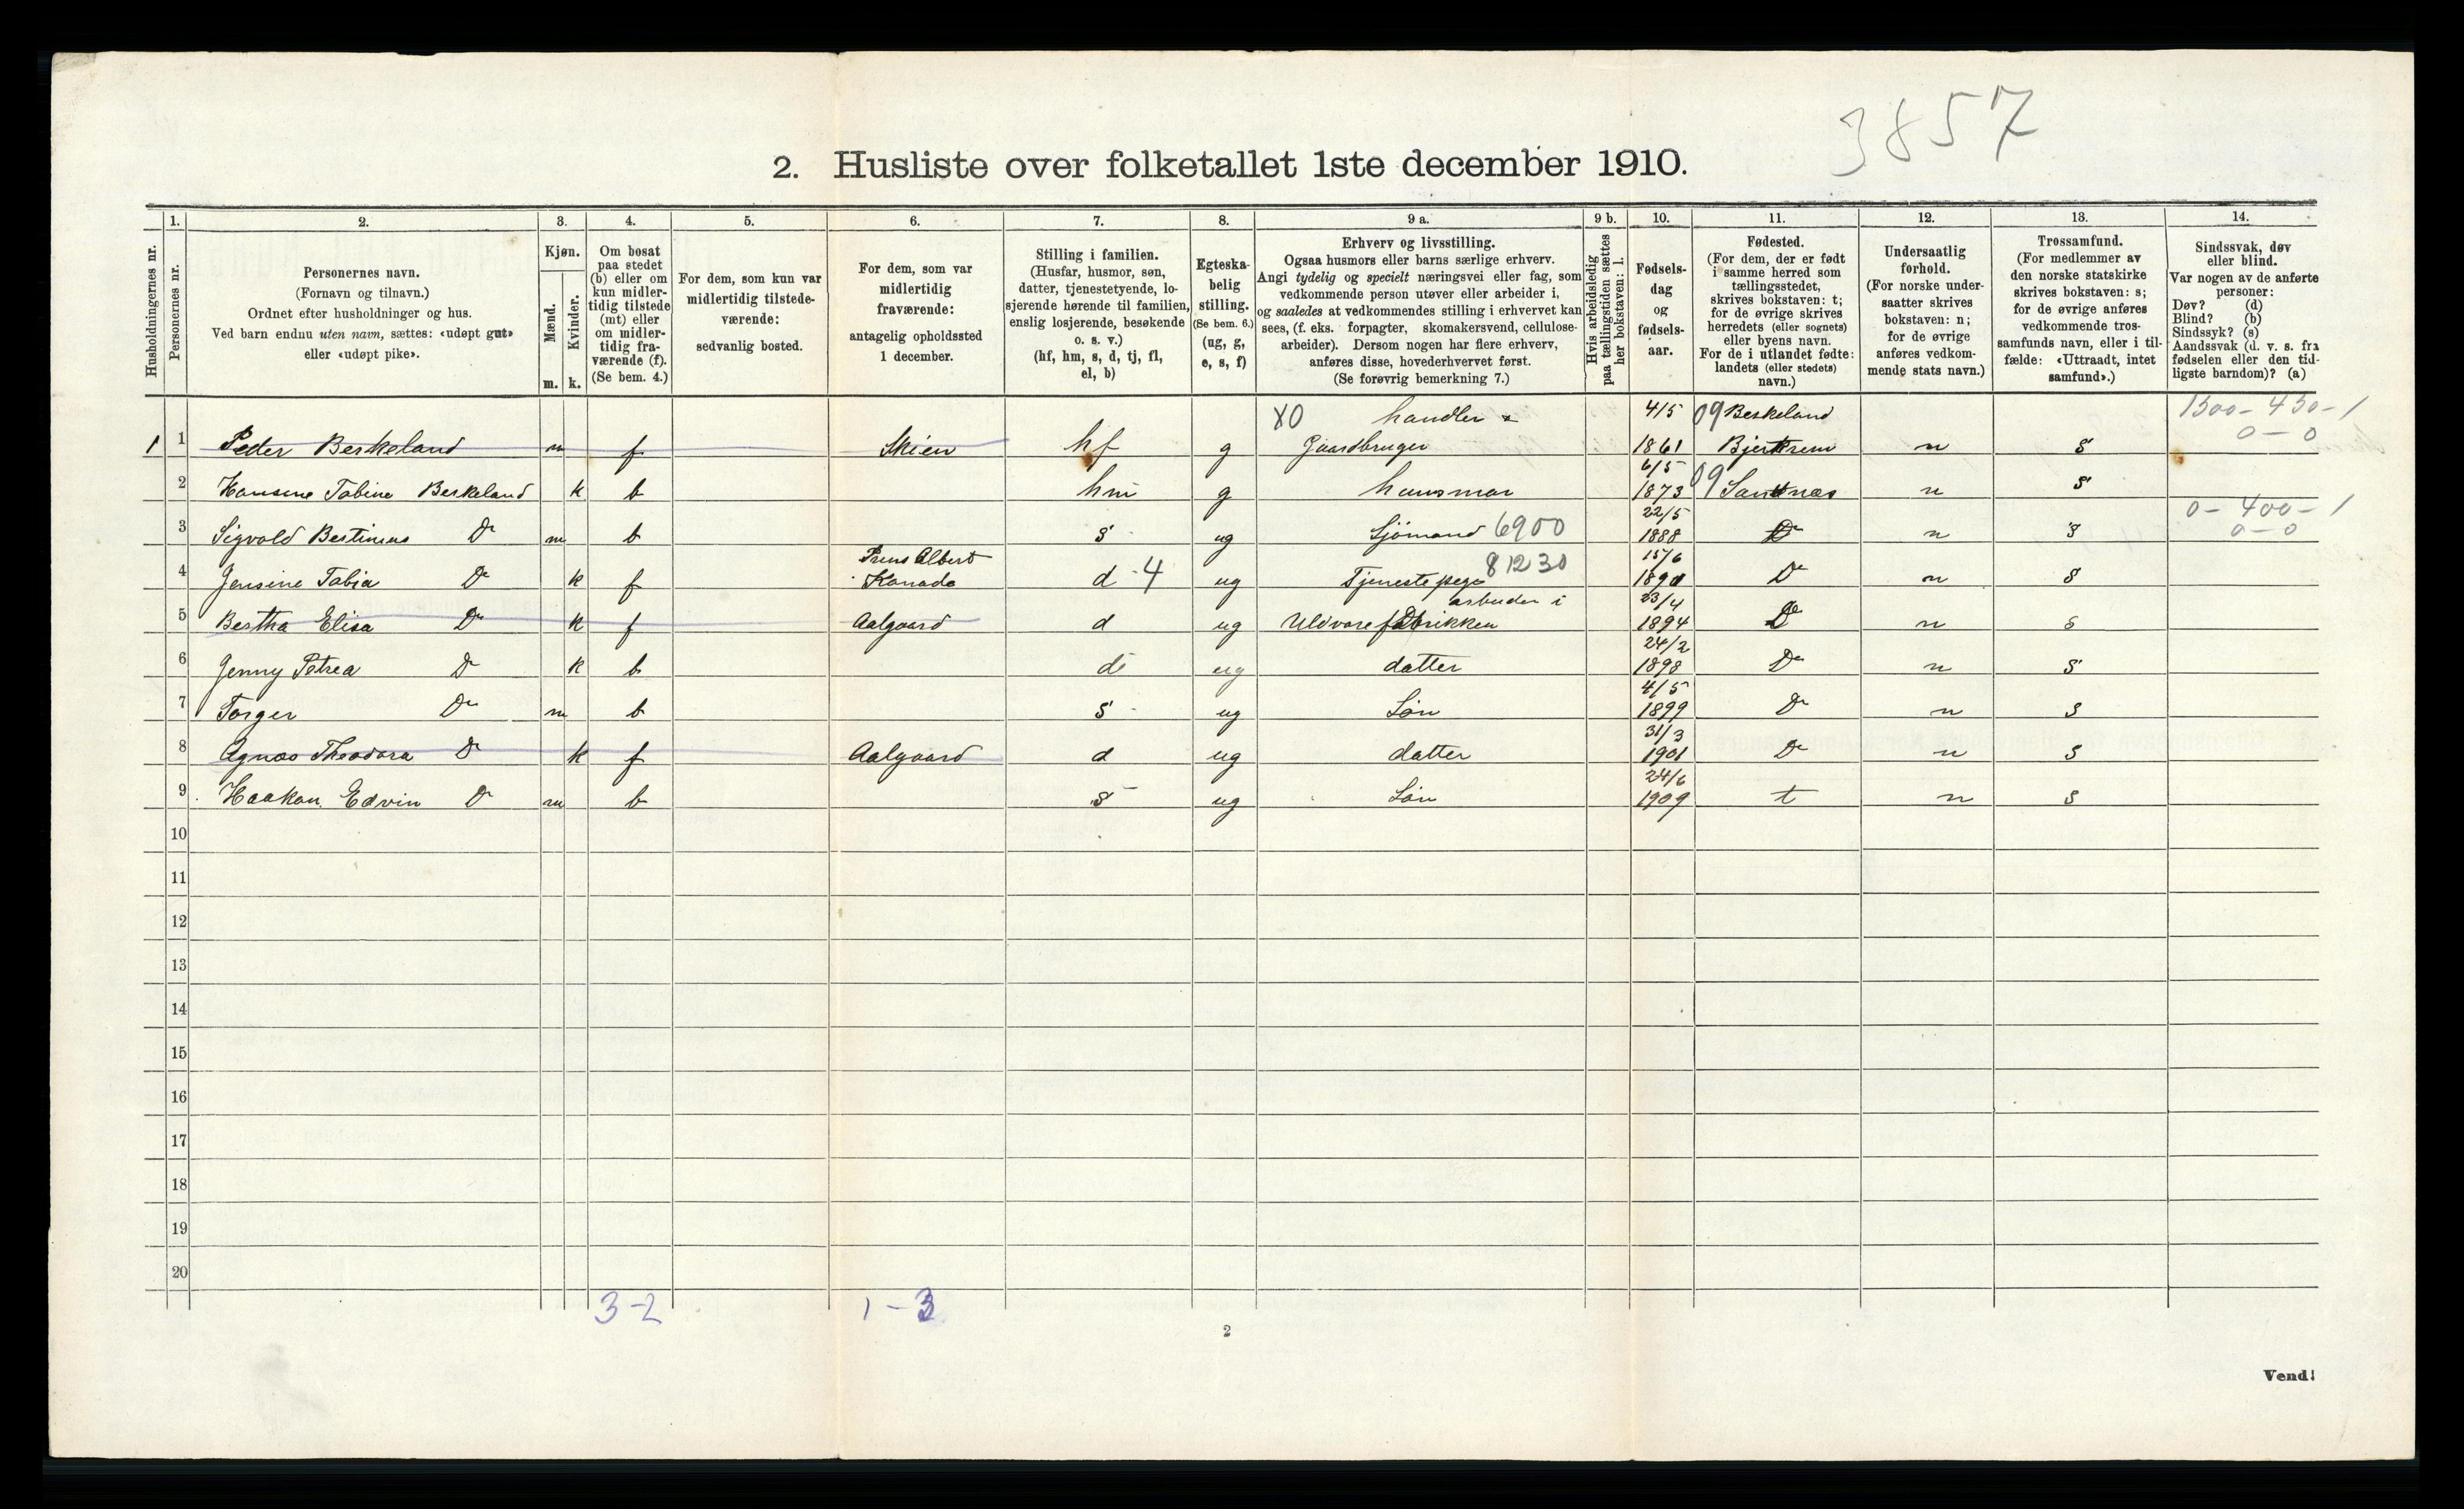 3857
2. Husliste over folketallet 1ste december 1910.
Husholdningernes nr.
1.
Personernes nr.
2.
Personernes navn.
(Fornavn og tilnavn.)
Ordnet efter husholdninger og hus.
Ved barn endnu uten navn, sættes: «udøpt gut»
eller «udøpt pike».
3.
Kjøn.
Mænd.
Kvinder.
m. k.
4.
Om bosat
paa stedet
(b) eller om
kun midler-
tidig tilstede
(mt) eller
om midler-
tidig fra-
værende (f).
(Se bem. 4.)
5.
For dem, som kun var
midlertidig tilstede-
værende:
sedvanlig bosted.
6.
For dem, som var
midlertidig
fraværende:
antagelig opholdssted
1 december.
7.
Stilling i familien.
(Husfar, husmor, søn,
datter, tjenestetyende, lo-
sjerende hørende til familien,
enslig losjerende, besøkende
o. s. v.)
(hf, hm, s, d, tj, fl,
el, b)
8.
Egteska-
belig
stilling.
(Se bem. 6.)
(ug, g,
e, s, f)
9 a.
Erhverv og livsstilling.
Ogsaa husmors eller barns særlige erhverv.
Angi tydelig og specielt næringsvei eller fag, som
vedkommende person utøver eller arbeider i,
og saaledes at vedkommendes stilling i erhvervet kan
sees, (f. eks. forpagter, skomakersvend, cellulose-
arbeider). Dersom nogen har flere erhverv,
anføres disse, hovederhvervet først.
(Se forøvrig bemerkning 7.)
9 b.
Hvis arbeidsledig
paa tællingstiden sættes
her bokstaven: l.
10.
Fødsels-
dag
og
fødsels-
aar.
11.
Fødested.
(For dem, der er født
i samme herred som
tællingsstedet,
skrives bokstaven: t;
for de øvrige skrives
herredets (eller sognets)
eller byens navn.
For de i utlandet fødte:
landets (eller stedets)
navn.)
12.
Undersaatlig
forhold.
(For norske under-
saatter skrives
bokstaven: n;
for de øvrige
anføres vedkom-
mende stats navn.)
13.
Trossamfund.
(For medlemmer av
den norske statskirke
skrives bokstaven: s;
for de øvrige anføres
vedkommende tros-
samfunds navn, eller i til-
fælde: «Uttraadt, intet
samfund».)
14.
Sindssvak, døv
eller blind.
Var nogen av de anførte
personer:
Døv? (d)
Blind? (b)
Sindssyk? (s)
Aandssvak (d. v. s. fra
fødselen eller den tid-
ligste barndom)? (a)
X0 handler 4/5 09 Berkeland 1500-450-1
1 1 Peder Berkeland m f Skien hf g Gaardbruger 1861 Bjerkrem n s 0-0
6/5 09
2 Hansine Tobine Berkeland k b hm g huusmor 1873 Sandnes n s
22/5 0-400-1
3 Sigvald Bertinius Do m b s ug Sjömand 6900 1888 Do n s 0-0
Prins Albert 81230 15/6
4 Jensine Tobia Do k f Kanada d 4 ug Tjenestepige 1890 Do n s
arbeider i 23/4
5 Bertha Elisa Do k f Aalgaard d ug Uldvarefabrikken 1894 Do n s
24/2
6 Jenny Petrea Do k b d ug datter 1898 Do n s
4/5
7 Torger Do m b s ug Sön 1899 Do n s
31/3
8 Agnes Theodora Do k f Aalgaard d ug datter 1901 Do n s
24/6
9 Haakon Edvin Do m b s ug Sön 1909 t n s
10
11
12
13
14
15
16
17
18
19
20
3-2 1-3
2
Vend!